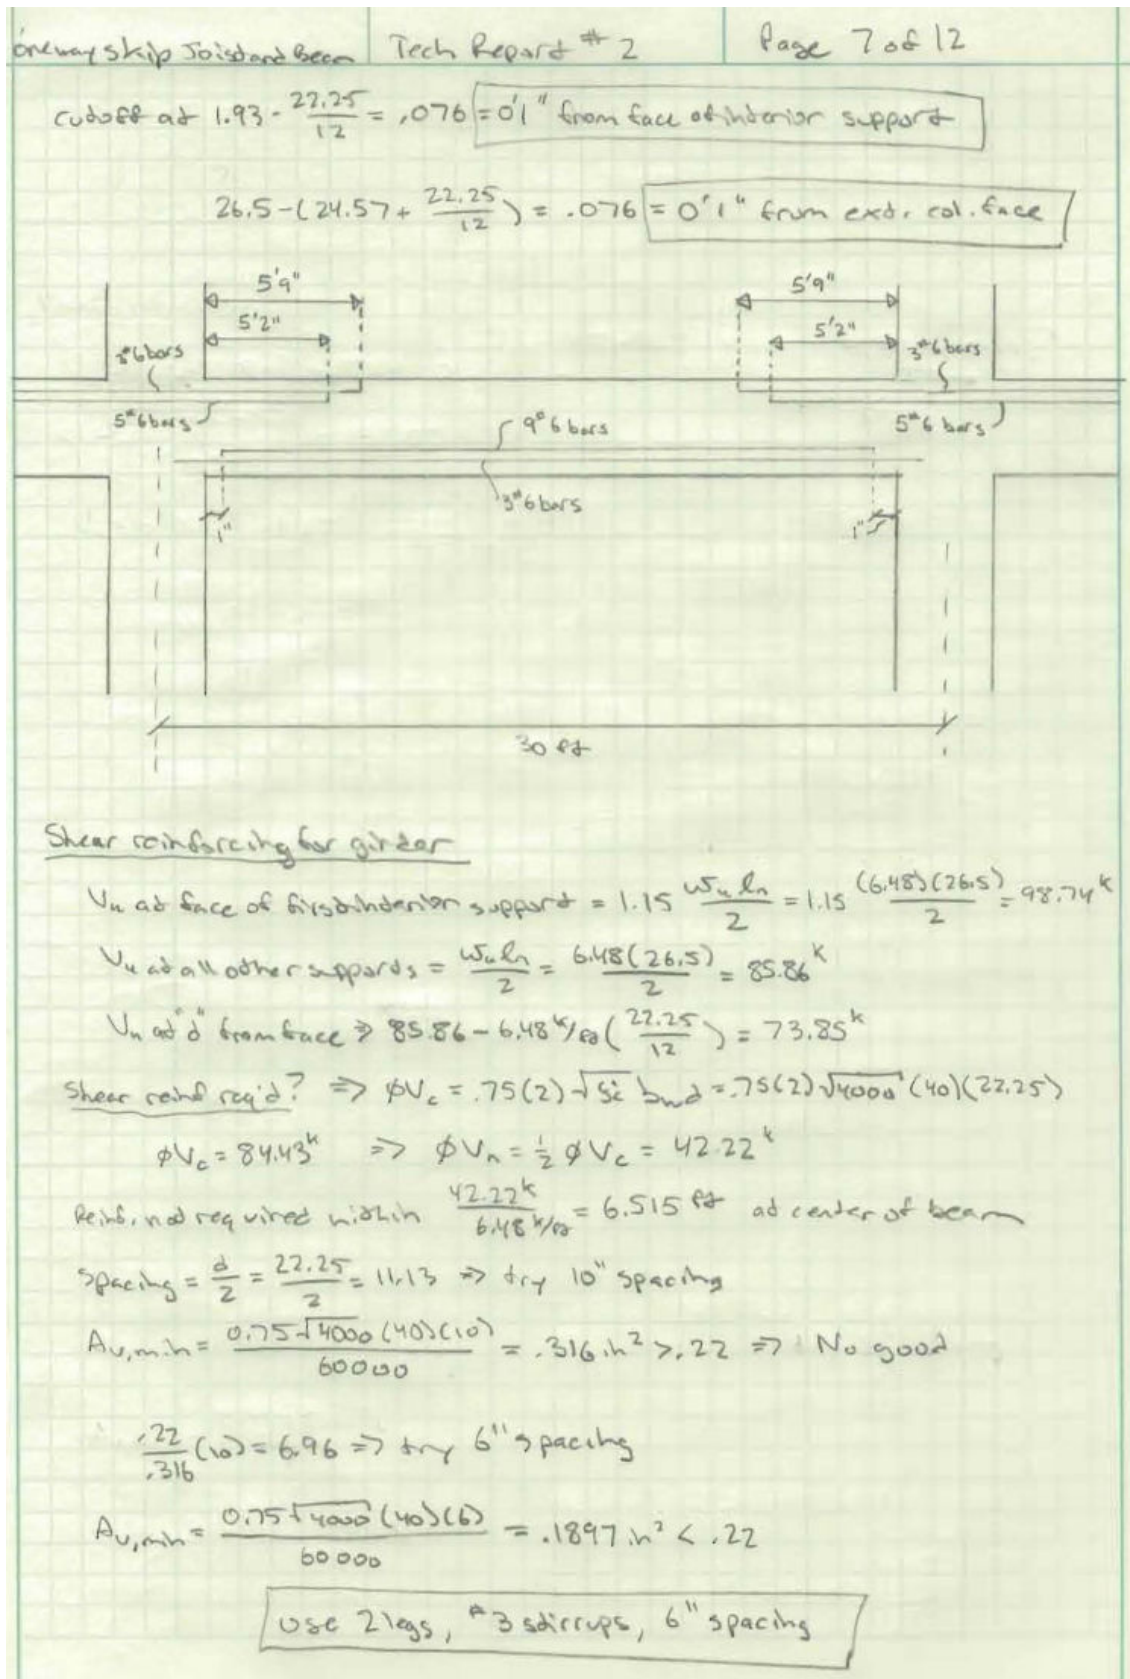 oneway skip Joist and Beam Tech Report # 2 Page 7 of 12
cutoff at 1.93 - 22.25/12 = .076 = 0'1" from face of interior support
26.5 - (24.57 + 22.25/12) = .076 = 0'1" from ext. col. face
5'9" 5'9"
5'2" 5'2"
3#6 bars 3#6 bars
5#6 bars 9#6 bars 5#6 bars
3#6 bars
1" 1"
30 ft
Shear reinforcing for girder
Vu at face of first interior support = 1.15 wu ln/2 = 1.15 (6.48)(26.5)/2 = 98.74k
Vu at all other supports = wu ln/2 = 6.48(26.5)/2 = 85.86k
Vu at "d" from face ⇒ 85.86 - 6.48 k/ft (22.25/12) = 73.85k
Shear reinf req'd? ⇒ φVc = .75(2)√f'c bwd = .75(2)√4000 (40)(22.25)
φVc = 84.43k ⇒ φVn = 1/2 φVc = 42.22k
Reinf. not required within 42.22k/6.48 k/ft = 6.515 ft at center of beam
Spacing = d/2 = 22.25/2 = 11.13 ⇒ try 10" spacing
Av,min = 0.75√4000 (40)(10)/60000 = .316 in² > .22 ⇒ No good
.22/.316 (10) = 6.96 ⇒ try 6" spacing
Av,min = 0.75√4000 (40)(6)/60000 = .1897 in² < .22
Use 2 legs, #3 stirrups, 6" spacing